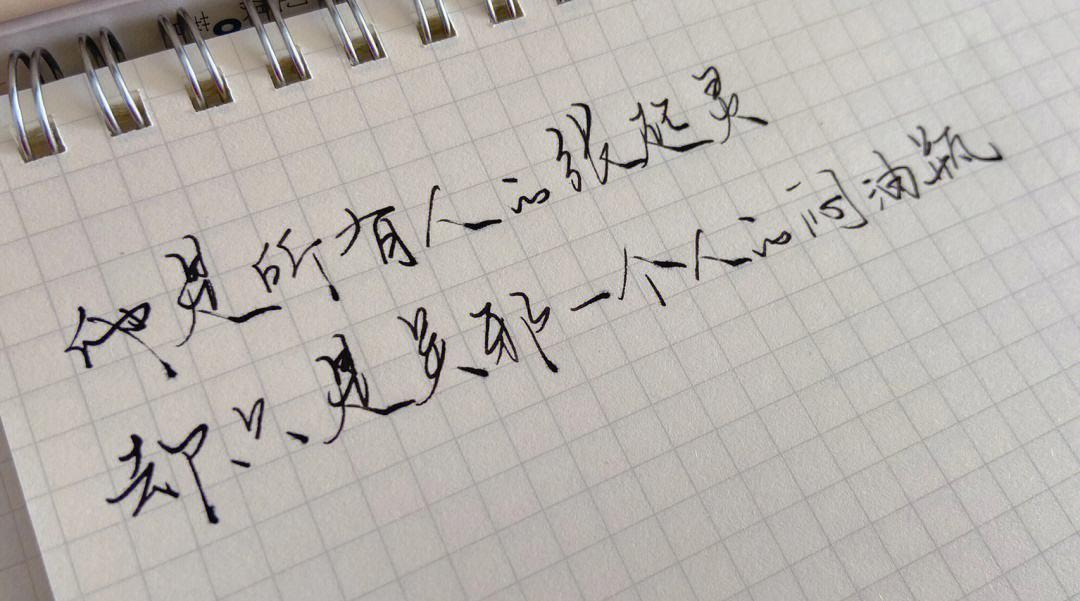 他是所有人的张起灵
却只是吴邪一个人的闷油瓶